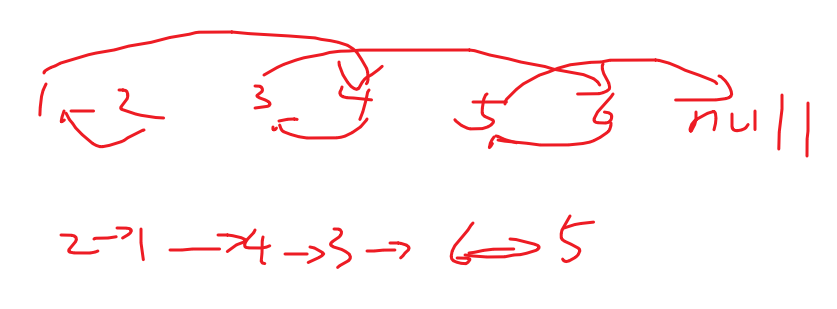 1 2 3 4 5 6 null
2 → 1 → 4 → 3 → 6 → 5